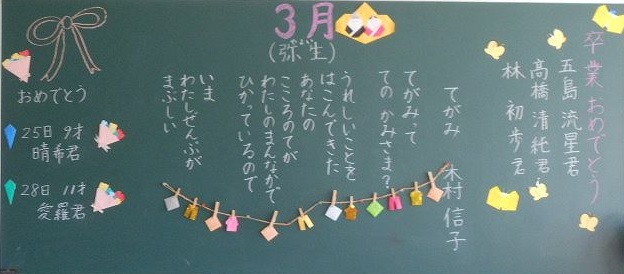 3月
(弥生)
やよい
卒業おめでとう
五島 流星君
高橋 清純君
林 初歩君
てがみ 木村 信子
てがみって
ての かみさま?
うれしいことを
はこんできた
あなたの
こころのてが
わたしのまんなかで
ひかっているので
いま
わたしぜんぶが
まぶしい
おめでとう
25日 9才
晴希君
28日 11才
愛羅君